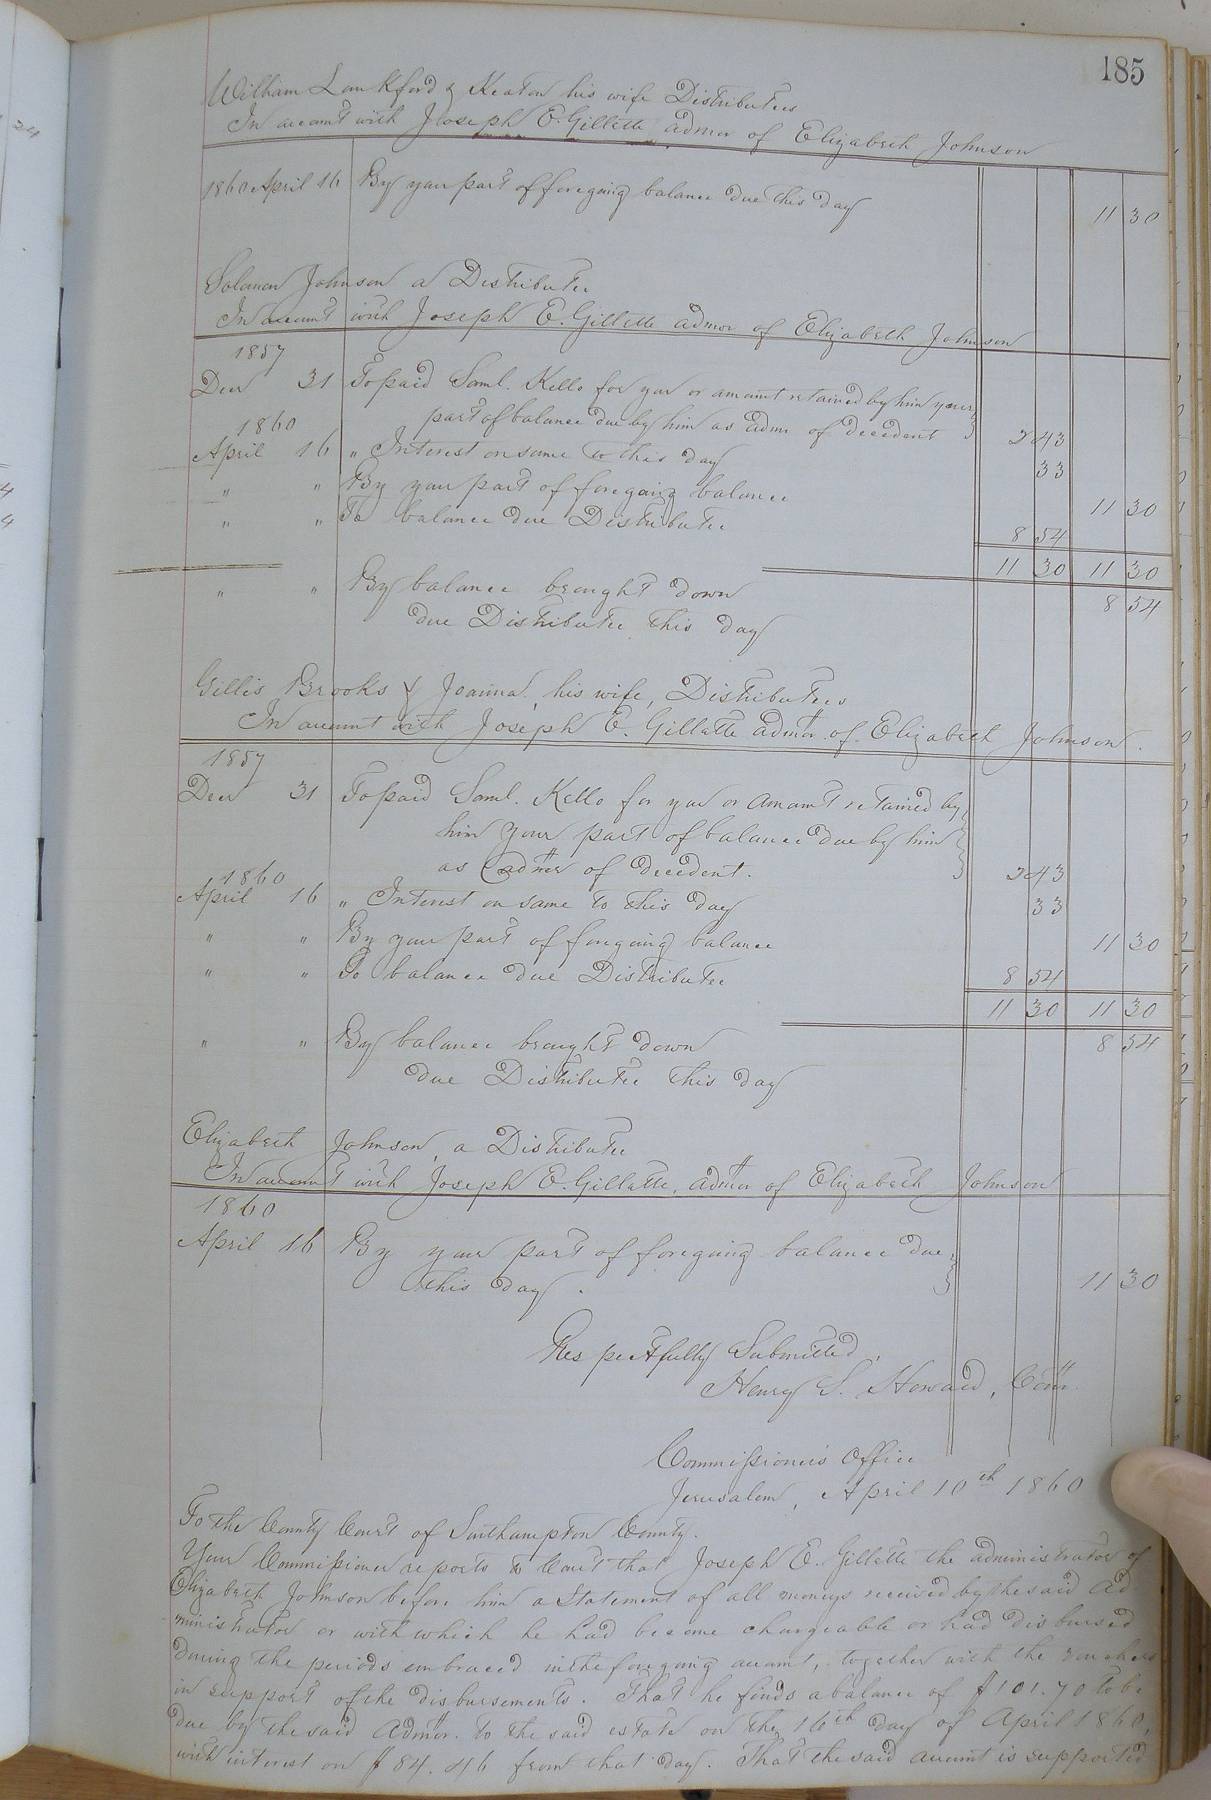 185
William Lankford & Keaton his wife Distributees
In account with Joseph E. Gillette admor of Elizabeth Johnson
1860 April 16 By your part of foregoing balance due this day 11 30
Solomon Johnson a Distributee
In account with Joseph E. Gillette admor of Elizabeth Johnson
1857
Decr 31 To paid Saml. Kello for you or amount retained by him your
part of balance due by him as admr of decedent 2 43
1860
April 16 " Interest on same to this day 33
" " By your part of foregoing balance 11 30
" " To balance due Distributee 8 54
11 30 11 30
" " By balance brought down 8 54
due Distributee this day
Gillis Brooks & Joanna, his wife, Distributees
In account with Joseph E. Gillette admor. of Elizabeth Johnson.
1857
Decr 31 To paid Saml. Kello for you or amount retained by
him your part of balance due by him
as admor of decedent. 2 43
1860
April 16 " Interest on same to this day 33
" " By your part of foregoing balance 11 30
" " To balance due Distributee 8 54
11 30 11 30
" " By balance brought down 8 54
due Distributee this day
Elizabeth Johnson, a Distributee
In account with Joseph E. Gillette, admor of Elizabeth Johnson
1860
April 16 By your part of foregoing balance due
this day. 11 30
Respectfully Submitted,
Henry S. Howard, Comr.
Commissioner's Office
Jerusalem, April 10th 1860
To the County Court of Southampton County.
Your Commissioner reports to Court that Joseph E. Gillette the administrator of
Elizabeth Johnson before him a Statement of all moneys received by the said Ad
ministrator or with which he had become chargeable or had disbursed
during the periods embraced in the foregoing account, together with the vouchers
in support of the disbursements. That he finds a balance of $101.70 to be
due by the said Admor. to the said estate on the 16th day of April 1860,
with interest on $84.46 from that day. That the said account is supported
24
4
4